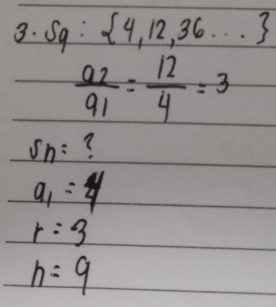 3. Sq: {4, 12, 36 ...}
a2/a1 = 12/4 = 3
Sn = ?
a1 = 4
r = 3
n = 9